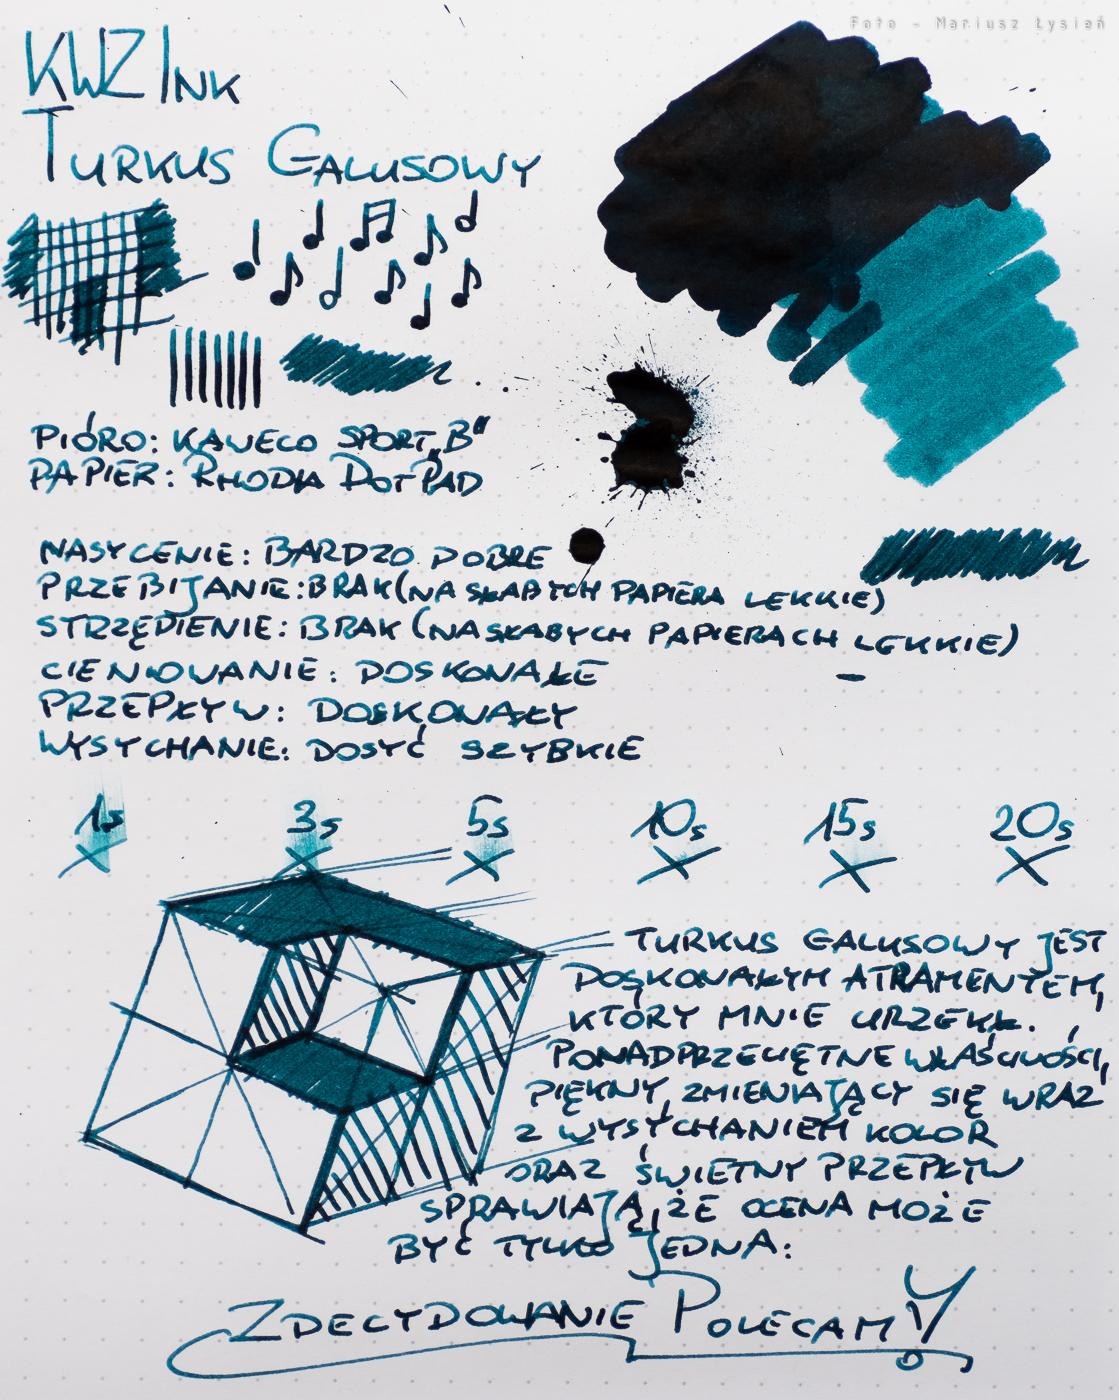 Foto - Mariusz Łysień
KWZ Ink
Turkus Galusowy
PIÓRO: KAWECO SPORT „B"
PAPIER: RHODIA DOTPAD
NASYCENIE: BARDZO DOBRE
PRZEBIJANIE: BRAK (NA SŁABYCH PAPIERA LEKKIE)
STRZĘPIENIE: BRAK (NA SŁABYCH PAPIERACH LEKKIE)
CIENIOWANIE: DOSKONAŁE
PRZEPŁYW: DOSKONAŁY
WYSYCHANIE: DOSYĆ SZYBKIE
1s 3s 5s 10s 15s 20s
TURKUS GALUSOWY JEST
DOSKONAŁYM ATRAMENTEM,
KTÓRY MNIE URZEKŁ.
PONADPRZECIĘTNE WŁAŚCIWOŚCI,
PIĘKNY, ZMIENIAJĄCY SIĘ WRAZ
Z WYSYCHANIEM KOLOR
ORAZ ŚWIETNY PRZEPŁYW
SPRAWIAJĄ, ŻE OCENA MOŻE
BYĆ TYLKO JEDNA:
ZDECYDOWANIE POLECAM!